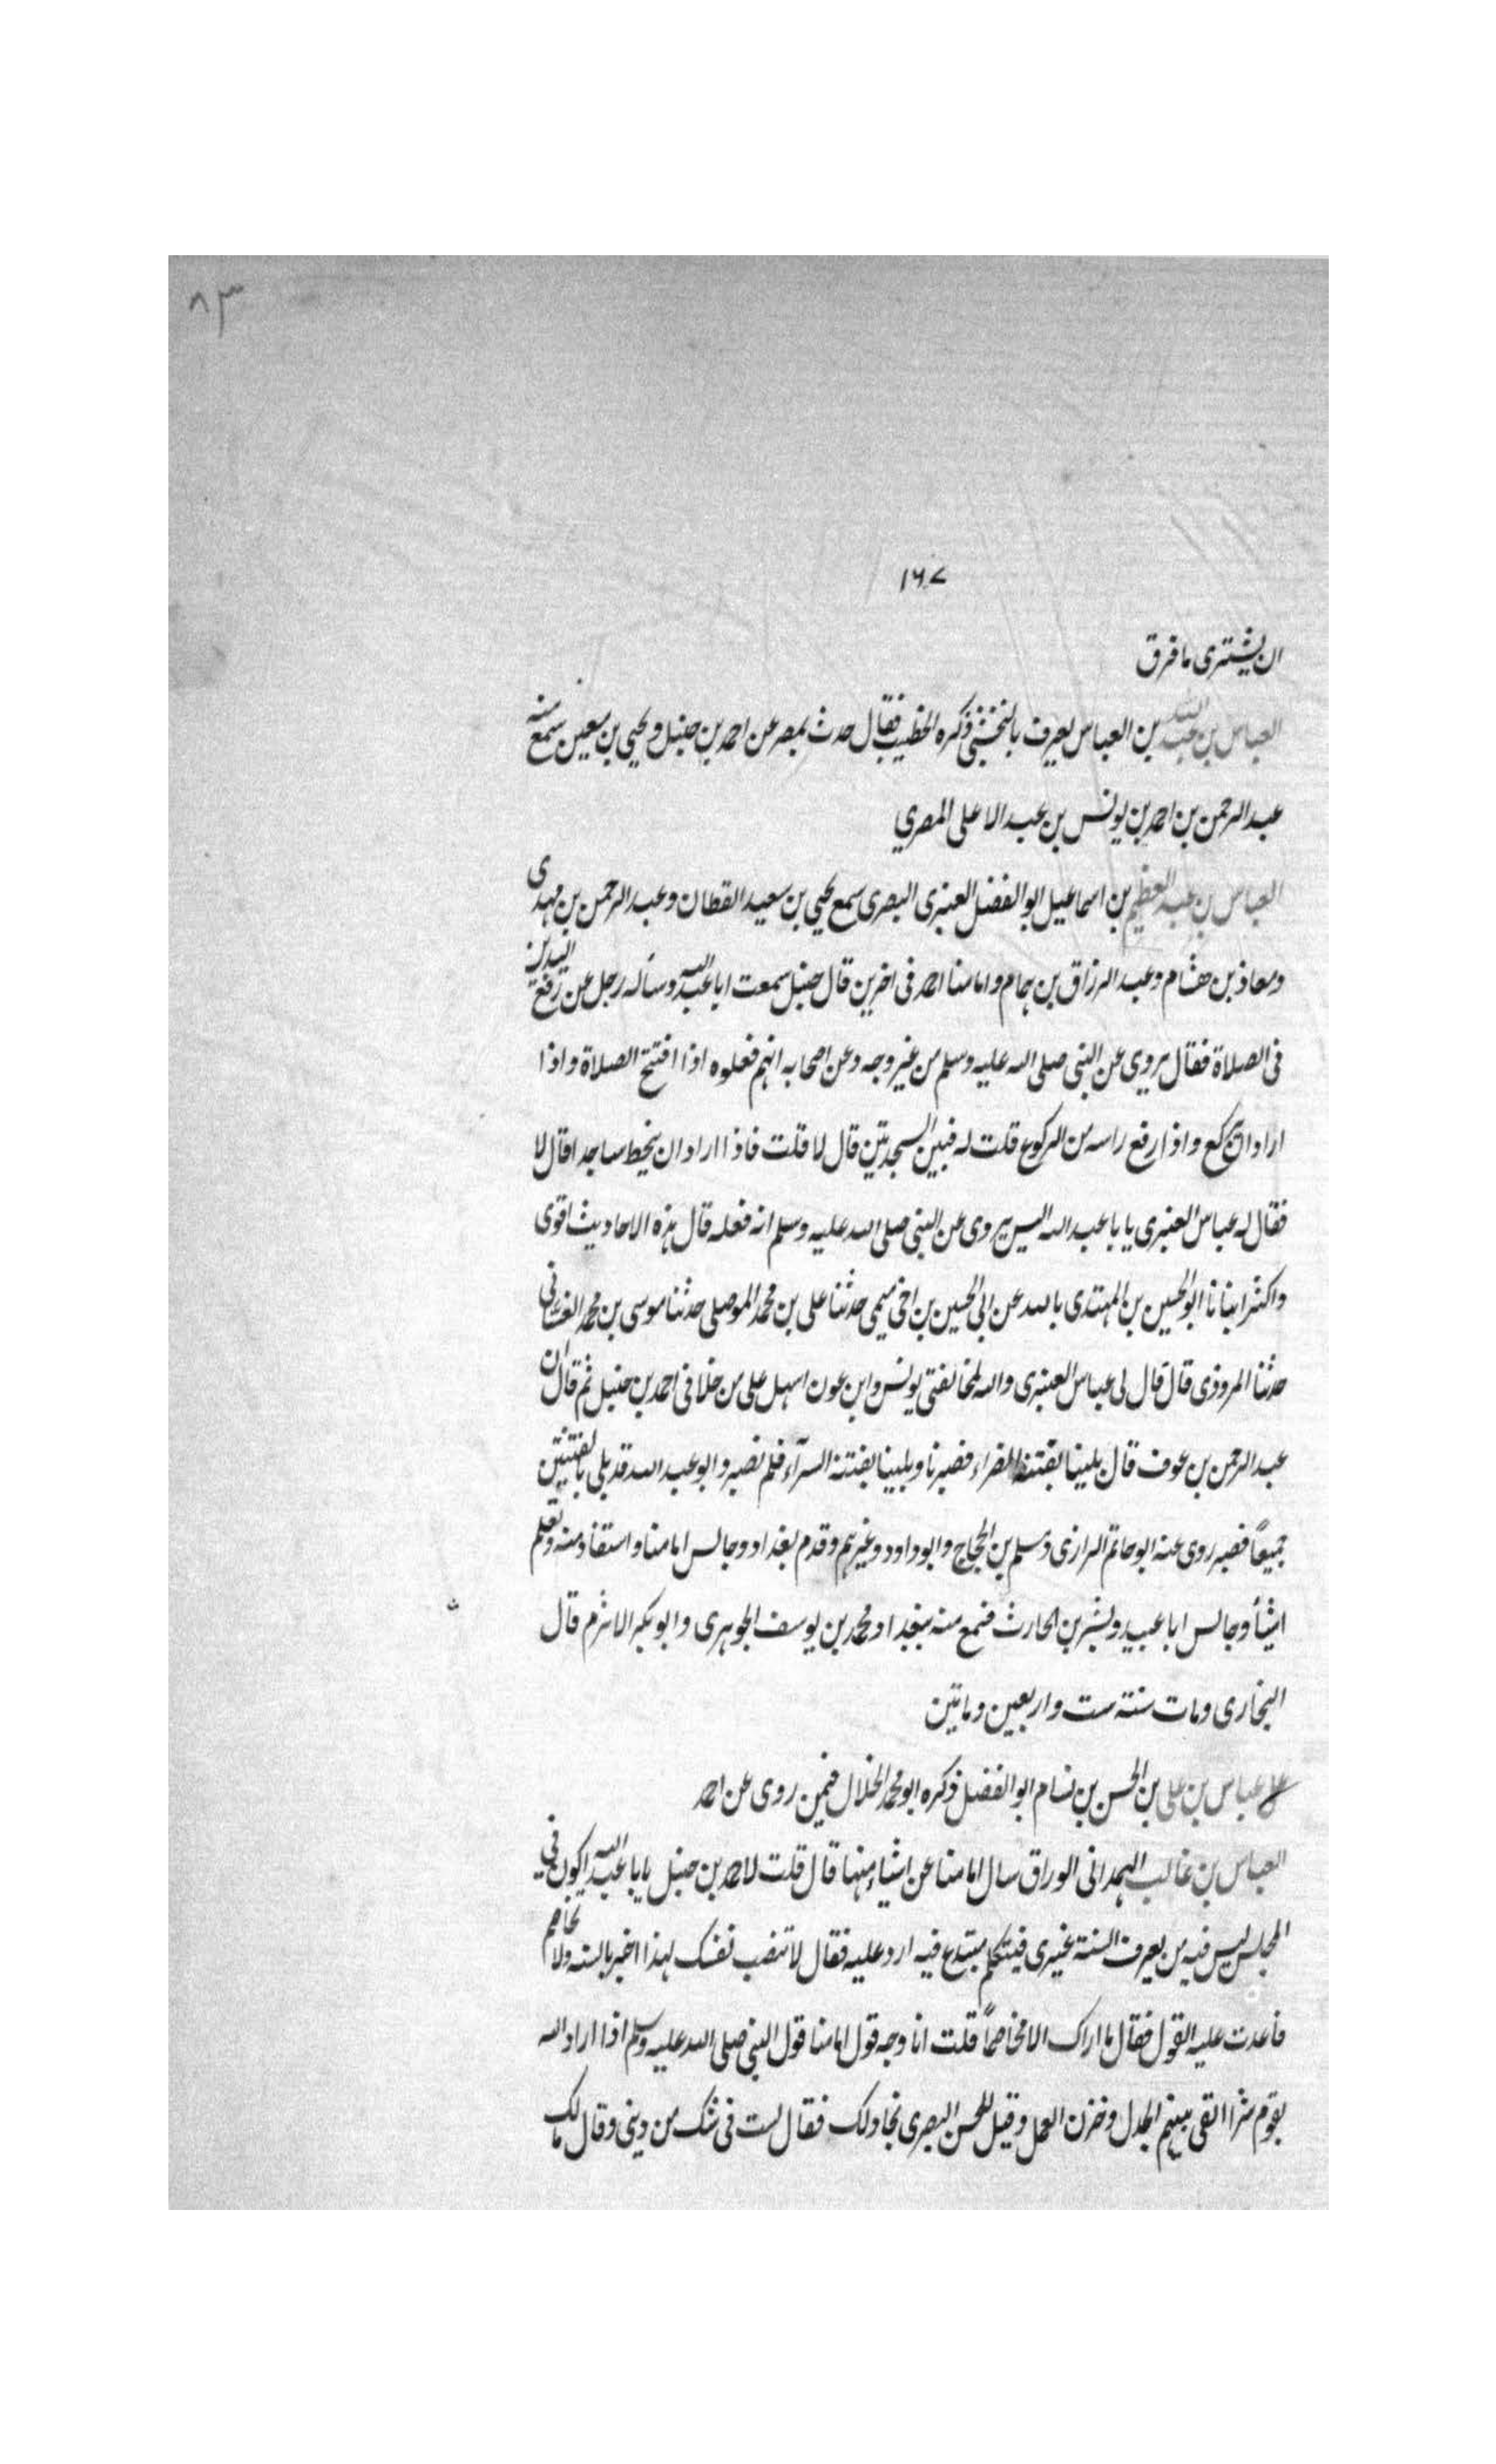 ٨٣
١٦٧
ان يشترى ما فرق
العباس بن عبد الله بن العباس يعرف بالنخشبى ذكره الخطيب فقال حدث بمصر عن احمد بن حنبل ويحيى بن معين سمع منه
عبد الرحمن بن احمد بن يونس بن عبد الاعلى المصري
العباس بن عبد العظيم بن اسماعيل ابو الفضل العنبرى البصرى سمع يحيى بن سعيد القطان وعبد الرحمن بن مهدى
ومعاذ بن هشام وعبد الرزاق بن همام وامامنا احمد فى اخرين قال حنبل سمعت ابا عبد الله وسأله رجل عن رفع اليدين
فى الصلاة فقال يروى عن النبى صلى الله عليه وسلم من غير وجه وعن اصحابه انهم فعلوه اذا افتتح الصلاة واذا
اراد ان يركع واذا رفع راسه من الركوع قلت له فبين السجدتين قال لا قلت فاذا اراد ان ينحط ساجدا قال لا
فقال له عباس العنبرى يا با عبد الله اليس يروى عن النبى صلى الله عليه وسلم انه فعله قال هذه الاحاديث اقوى
واكثر انبانا ابو الحسين بن المهتدى بالله عن ابى الحسين بن اخى ميمى حدثنا على بن محمد الموصلى حدثنا موسى بن محمد الغسانى
حدثنا المروذى قال قال لى عباس العنبرى والله لمخالفتى يونس وابن عون اسهل على من خلافى احمد بن حنبل ثم قال ان
عبد الرحمن بن عوف قال بلينا بفتنة الضراء فصبرنا وبلينا بفتنة السرآء فلم نصبر وابو عبد الله قد بلى بالفتنتين
جميعاً فصبر روى عنه ابو حاتم الرازى ومسلم بن الحجاج وابو داود وغيرهم وقدم بغداد وجالس امامنا واستفاد منه وتعلم
اشيأ وجالس ابا عبيد وبشر بن الحارث فسمع منه ببغداد ومحمد بن يوسف الجوهرى وابو بكر الاثرم قال
البخارى ومات سنة ست واربعين ومايتين
عباس بن على بن الحسن بن بسام ابو الفضل ذكره ابو محمد الخلال فيمن روى عن احمد
العباس بن غالب الهمدانى الوراق سال امامنا عن اشياء منها قال قلت لاحمد بن حنبل يا با عبد الله اكون فى
المجلس ليس فيه من يعرف السنة غيرى فيتكلم مبتدع فيه ارد عليه فقال لا تنصب نفسك لهذا اخبر بالسنة ولا تخاصم
فاعدت عليه القول فقال ما اراك الا مخاصماً قلت انا وجه قول امامنا قول النبى صلى الله عليه وسلم اذا اراد الله
بقوم شرا القى بينهم الجدل وخزن العمل وقيل للحسن البصرى نجادلك فقال لست فى شك من دينى وقال مالك